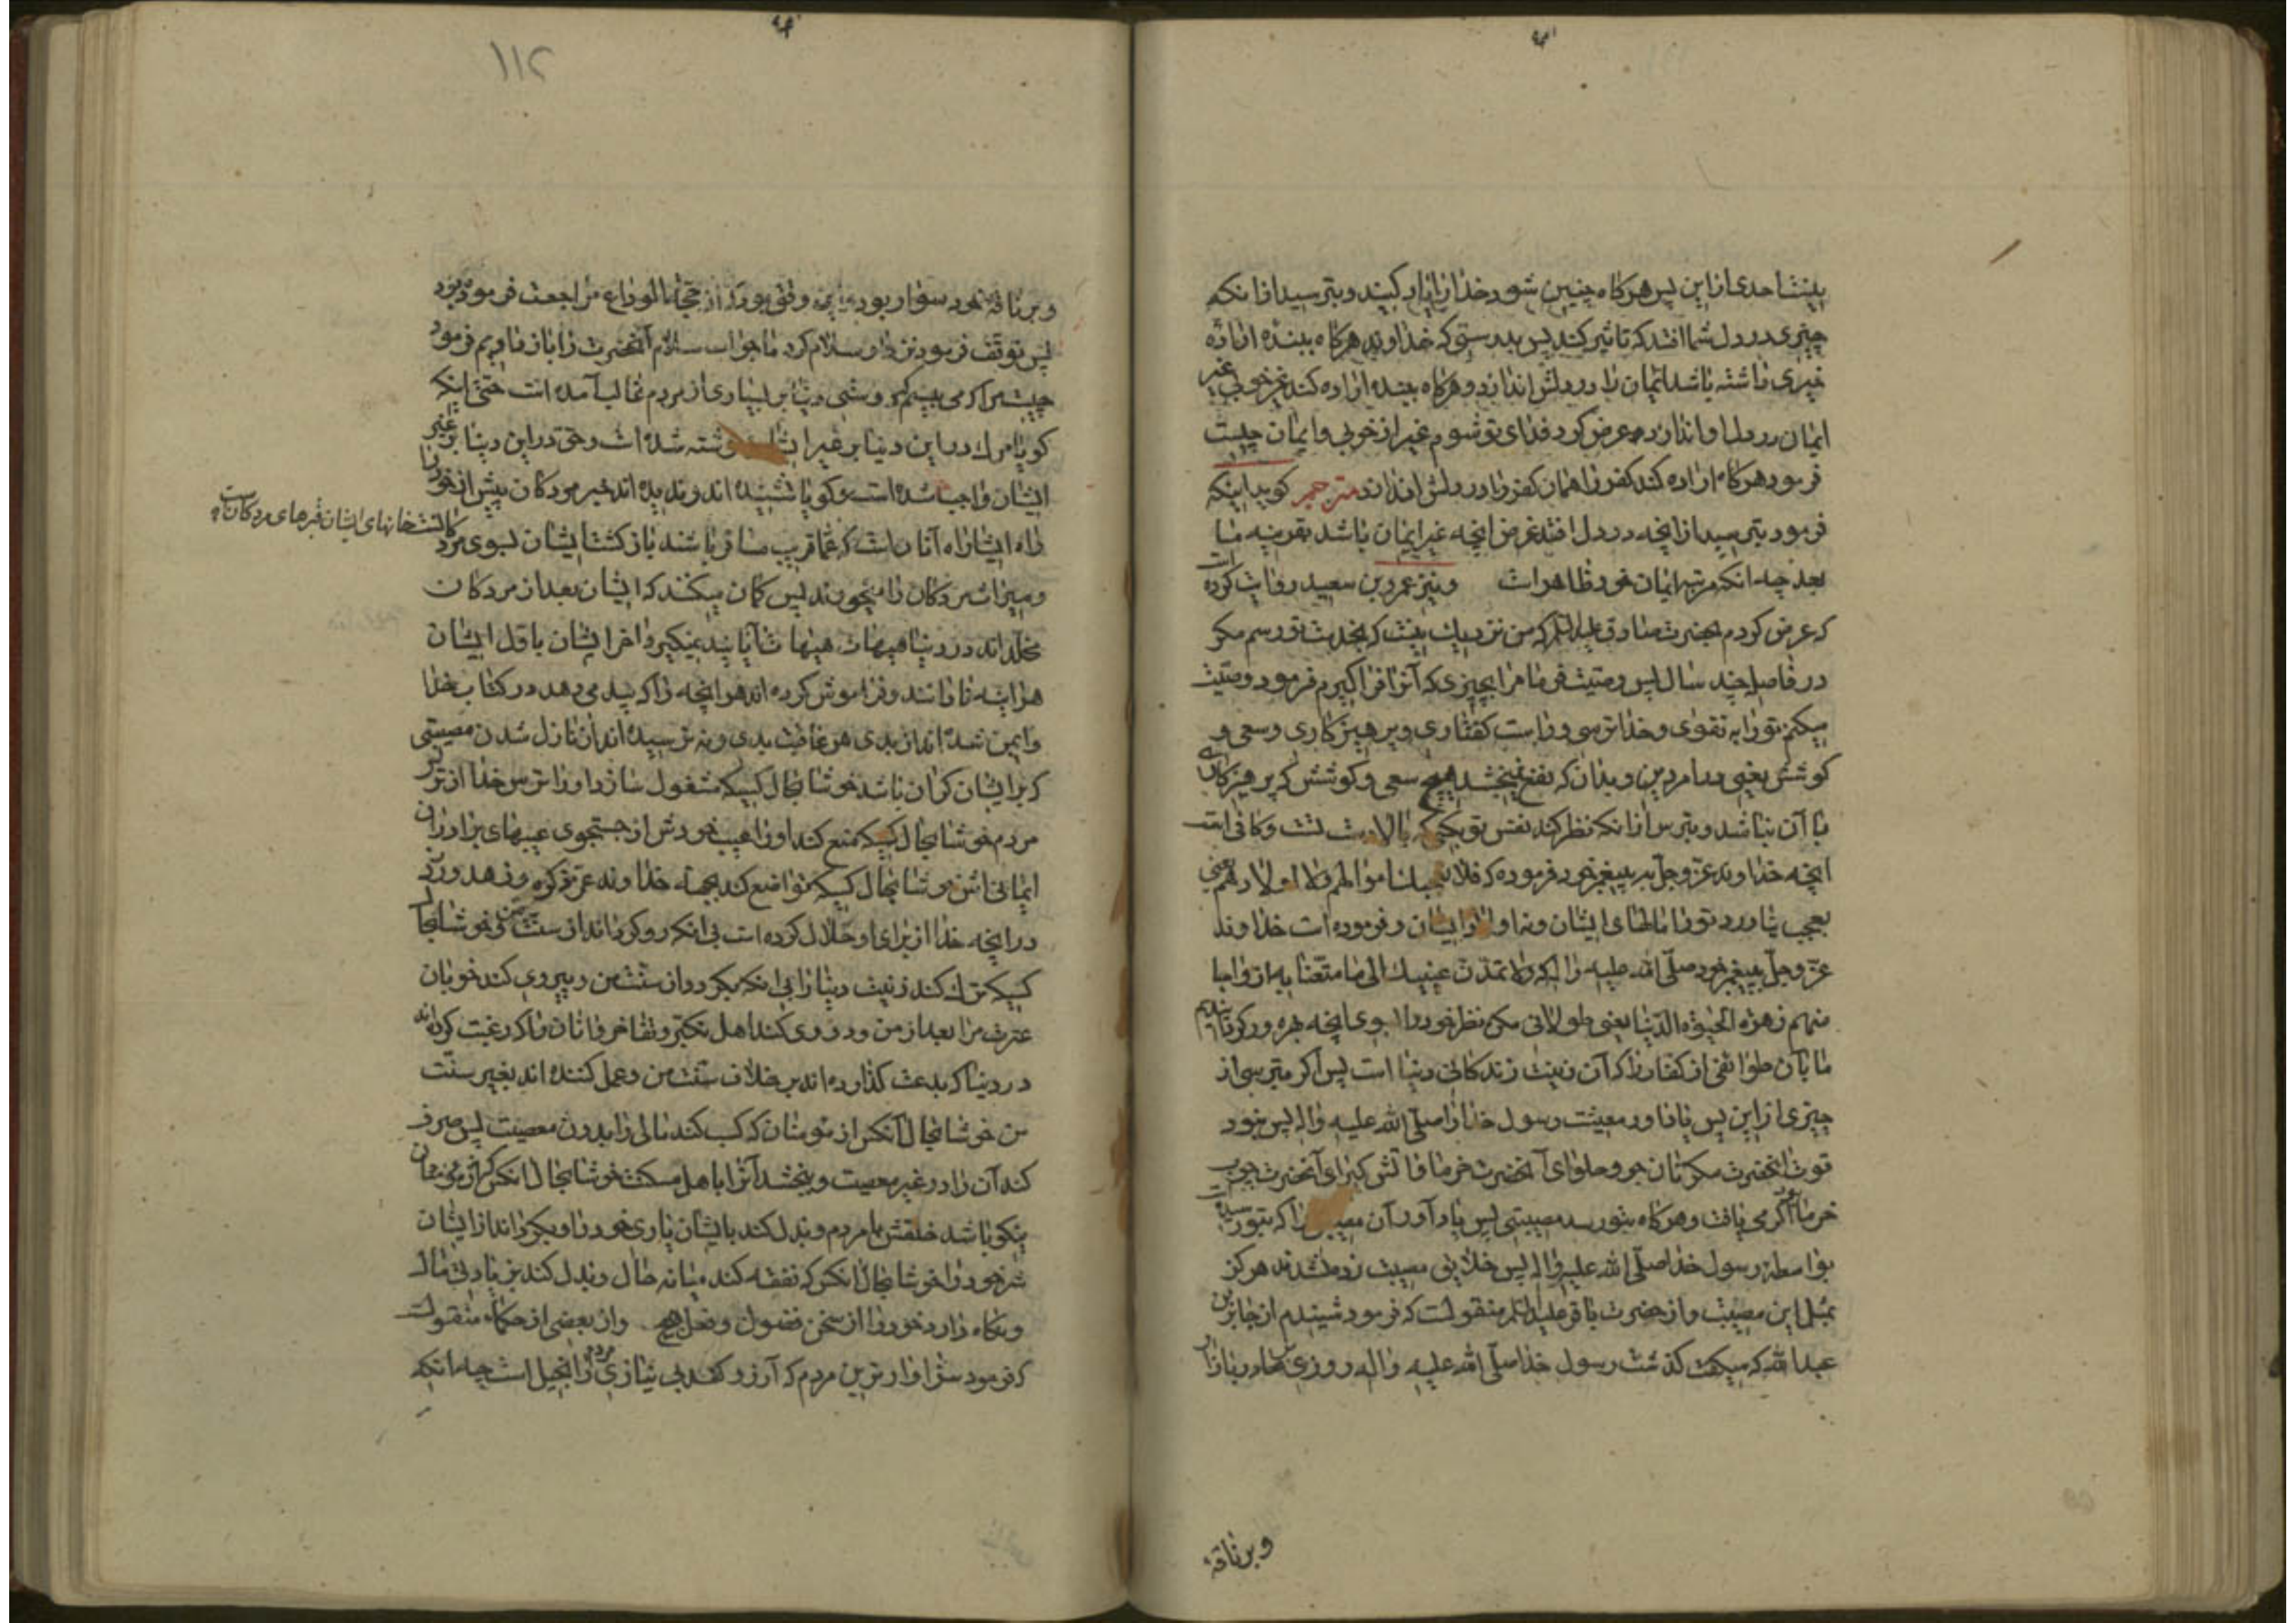 بینشاحدی از این پس هرکاه چنین شود خدا را یاد کنید و بترسید از انکه
چیزی در دل شما افتد که تاثیر کند پس بدرستی که خداوند هرکاه ببنده اراده
خیری داشته باشد ایمان را در دلش اندازد و هرکاه ببنده اراده کند غیر خوبی غیر
ایمان در دل او اندازد عرض کرد فدای تو شوم غیر از خوبی و ایمان چیست
فرمود هرکاه اراده کند کفر را همان کفر را در دلش اندازد مترجم کوید اینکه
فرمود بترسید از انچه در دل افتد غرض انچه غیر ایمان باشد بقرینه ما
بعد چه انکه مرتبه ایمان خود ظاهر است و نیز عمرو بن سعید روایت کرده است
که عرض کردم بحضرت صادق علیه السلم که من نزدیک نیست که بخدمت تو رسم مکر
در فاصله چند سال پس وصیت فرما مرا بچیزی که آنرا فرا کیرم فرمود وصیت
میکنم تو را به تقوی و خدا ترسی و راست کفتاری و پرهیزکاری و سعی و
کوشش یعنی در امر دین و بدان که نفع نمیبخشد هیچ سعی و کوشش که پرهیزکاری
با آن نباشد و بترس از انکه نظر کند نفس تو بکسی که بالادست تست و کافی است
انچه خداوند عز و جل به پیغمبر خود فرموده که فلا تعجبک اموالهم و لا اولادهم یعنی
بعجب نیاورد تو را مالهای ایشان و نه اولاد ایشان و فرموده است خداوند
عز و جل به پیغمبر خود صلی الله علیه و اله که و لا تمدن عینیک الی ما متعنا به ازواجا
منهم زهرة الحیوة الدنیا یعنی طولانی مکن نظر خود را بسوی انچه بهره ور کردانیدیم
ما بآن طوائفی از کفار را که آن زینت زندکانی دنیا است پس اکر بترسی از
چیزی از این پس یاد اور معیشت رسول خدا را صلی الله علیه و اله پس نبود
قوت انحضرت مکر نان جو و حلوای آنحضرت خرما و اتش کیرای آنحضرت چوب
خرما اکر می یافت و هرکاه بتو رسد مصیبتی پس یاد آور آن مصیبتی را که بتو رسیده است
بواسطه رسول خدا صلی الله علیه و اله پس خلایق مصیبت زده نشدند هرکز
بمثل این مصیبت و از حضرت باقر علیه السلم منقولست که فرمود شنیدم از جابر بن
عبدالله که میکفت کذشت رسول خدا صلی الله علیه و اله روزی بما در بازار
و بر ناقهٔ
۱۱۲
و بر ناقهٔ خود سوار بود و این وقتی بود که از حجة الوداع مراجعت فرموده بود
پس توقف فرمود نزد ما و سلام کرد ما جواب سلام آنحضرت را باز دادیم فرمود
چیست مرا که می بینم که دوستی دنیا بر بسیاری از مردم غالب آمده است حتی انکه
کویا مرک در این دنیا بر غیر ایشان نوشته شده است و حق در این دنیا بر غیر
ایشان واجب شده است و کویا نشنیده اند و ندیده اند خبر مردکان پیش از خود را
راه ایشان راه آنان است که عما قریب مسافر باشند بازکشت ایشان بسوی مرد
کانست خانهای ایشان قبرهای مردکانست
و میراث مردکان را میخورند پس کمان میکنند که ایشان بعد از مردکان
مخلد اند در دنیا هیهات هیهات آیا پند نمیکیرد اخر ایشان باول ایشان
هراینه نادانند و فراموش کرده اند هر انچه را که پند می دهد در کتاب خدا
و ایمن شده اند از بدی هر عاقبت بدی و نه ترسیده اند از نازل شدن مصیبتی
که بر ایشان کران باشد خوشا بحال کسیکه مشغول سازد او را ترس خدا از ترس
مردم خوشا بحال کسیکه منع کند او را عیب خودش از جستجوی عیبهای برادران
ایمانی اش خوشا بحال کسیکه تواضع کند بجهت خداوند عز ذکره و زهد ورزد
در انچه خدا از برای او حلال کرده است بی انکه رو کرداند از سنت من خوشا بحال
کسیکه ترک کند زینت دنیا را بی انکه بکردد از سنت من و پیروی کند خوبان
عترت مرا بعد از من و دوری کند اهل تکبر و تفاخر و انان را که رغبت کرده اند
در دنیا که بدعت کذارده اند بر خلاف سنت من و عمل کننده اند بغیر سنت
من خوشا بحال آنکس از مومنان که کسب کند مالی را بدون معصیت پس صرف
کند آن را در غیر معصیت و ببخشد آنرا باهل مسکنت خوشا بحال انکس که
نیکو باشد خلقش با مردم و بذل کند بایشان یاری خود را و بکرداند از ایشان
شر خود را خوشا بحال انکس که نفقه کند میانه حال و بذل کند زیادتی مال
و نکاه دارد خود را از سخن فضول و فعل قبیح و از بعضی از حکماء منقولست
که فرمود سزاوارترین مردم که آرزو کند بی نیازی مردم را بخیل است چه انکه